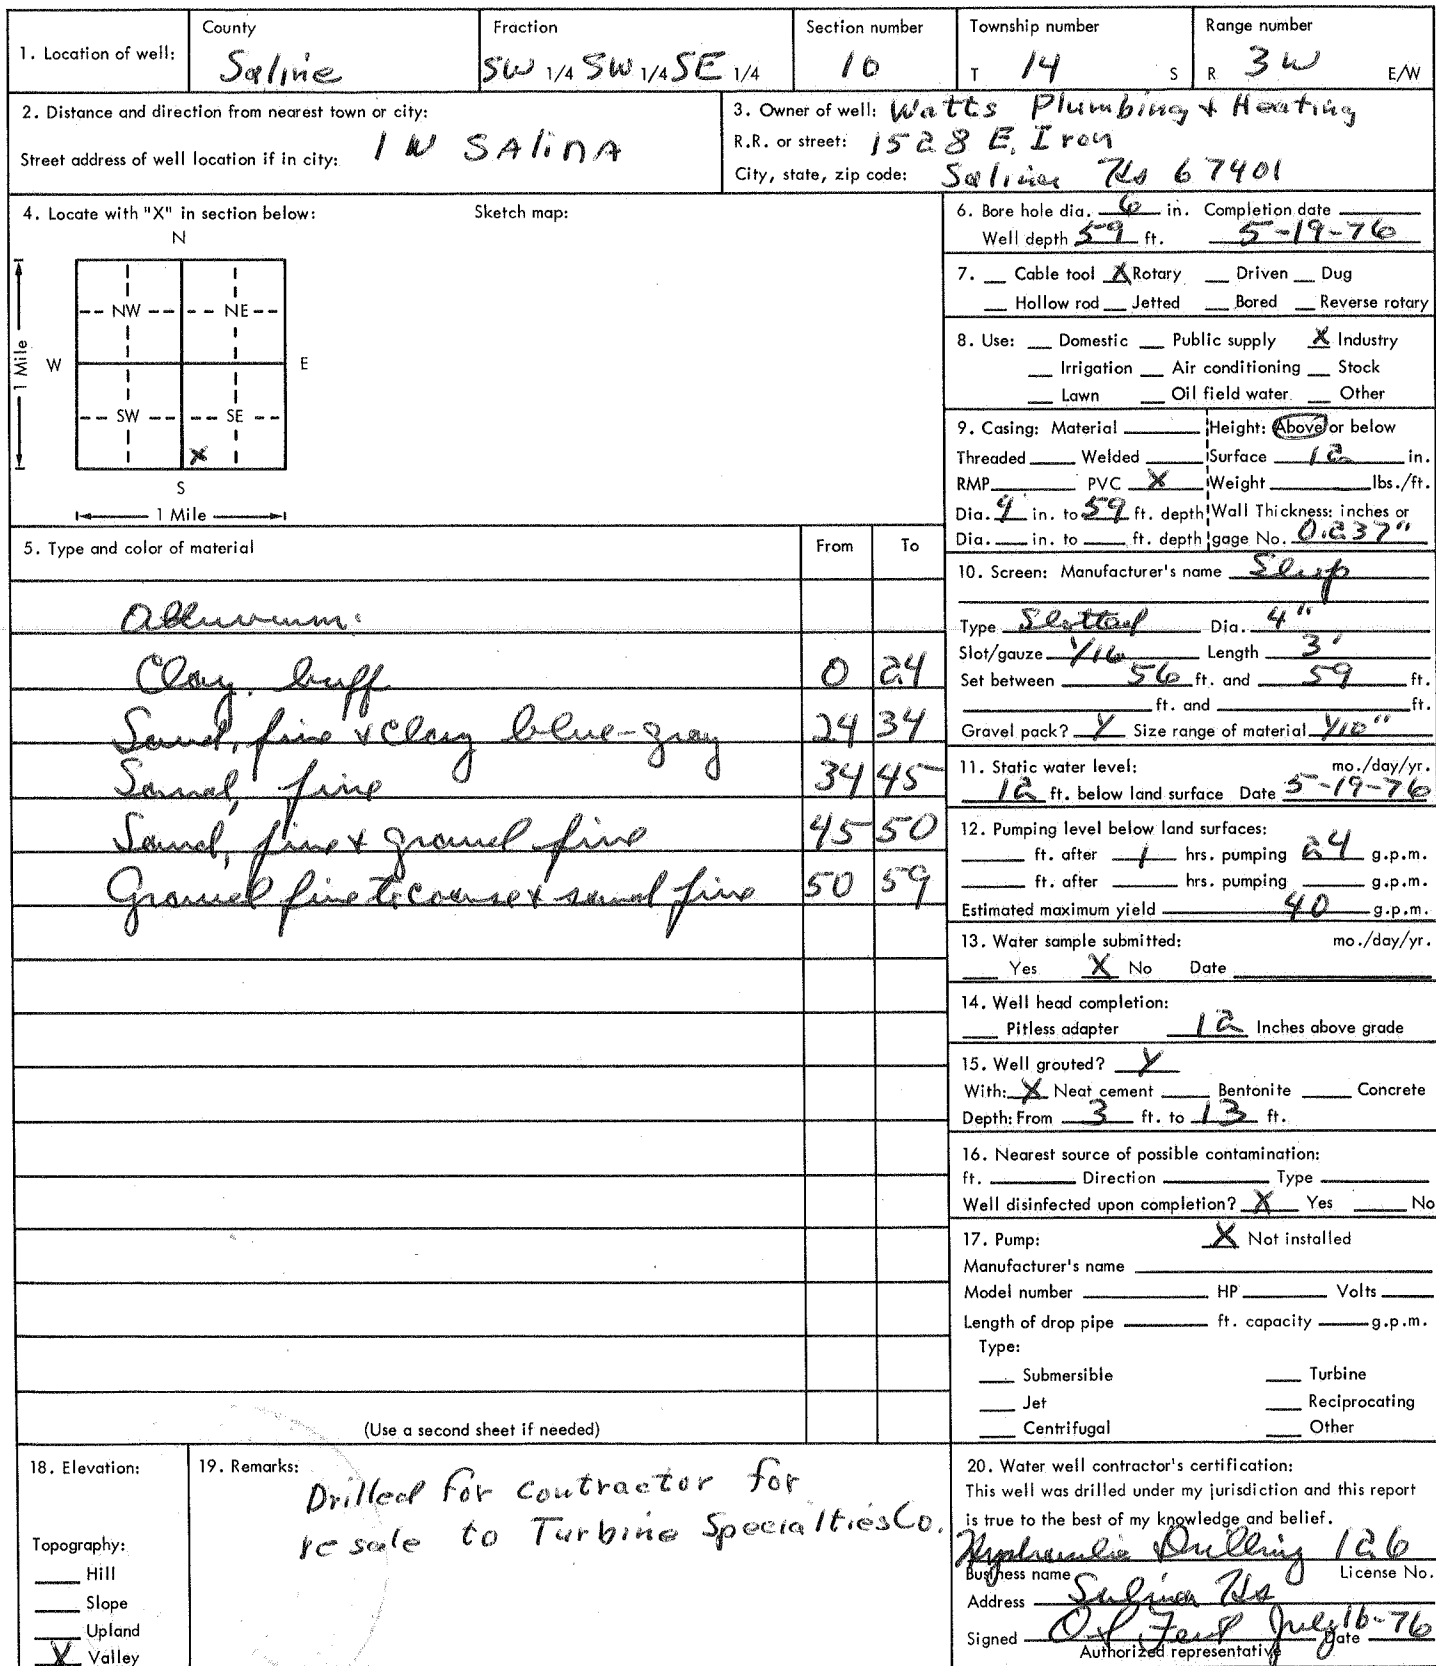 County Fraction Section number Township number Range number
1. Location of well: Saline SW 1/4 SW 1/4 SE 1/4 10 T 14 S R 3W E/W
2. Distance and direction from nearest town or city:
Street address of well location if in city: 1 W SAlinA
3. Owner of well: Watts Plumbing + Heating
R.R. or street: 1528 E. Iron
City, state, zip code: Salina Ks 67401
4. Locate with "X" in section below: Sketch map:
N
NW NE
W E
SW SE
X
S
1 Mile
1 Mile
5. Type and color of material From To
Alluvium:
Clay, buff 0 24
Sand, fine + clay blue-gray 24 34
Sand, fine 34 45
Sand, fine + gravel fine 45 50
Gravel fine to coarse + sand fine 50 59
(Use a second sheet if needed)
6. Bore hole dia. 6 in. Completion date
Well depth 59 ft. 5-19-76
7. Cable tool X Rotary Driven Dug
Hollow rod Jetted Bored Reverse rotary
8. Use: Domestic Public supply X Industry
Irrigation Air conditioning Stock
Lawn Oil field water Other
9. Casing: Material Height: Above or below
Threaded Welded Surface 12 in.
RMP PVC X Weight lbs./ft.
Dia. 4 in. to 59 ft. depth Wall Thickness: inches or
Dia. in. to ft. depth gage No. 0.237"
10. Screen: Manufacturer's name
Type Slotted Dia. 4"
Slot/gauze 1/16 Length 3'
Set between 56 ft. and 59 ft.
ft. and ft.
Gravel pack? Y Size range of material 1/10"
11. Static water level: mo./day/yr.
12 ft. below land surface Date 5-19-76
12. Pumping level below land surfaces:
ft. after 1 hrs. pumping 24 g.p.m.
ft. after hrs. pumping g.p.m.
Estimated maximum yield 40 g.p.m.
13. Water sample submitted: mo./day/yr.
Yes X No Date
14. Well head completion:
Pitless adapter 12 Inches above grade
15. Well grouted? Y
With: X Neat cement Bentonite Concrete
Depth: From 3 ft. to 13 ft.
16. Nearest source of possible contamination:
ft. Direction Type
Well disinfected upon completion? X Yes No
17. Pump: X Not installed
Manufacturer's name
Model number HP Volts
Length of drop pipe ft. capacity g.p.m.
Type:
Submersible Turbine
Jet Reciprocating
Centrifugal Other
18. Elevation:
Topography:
Hill
Slope
Upland
X Valley
19. Remarks: Drilled for contractor for
resale to Turbine Specialties Co.
20. Water well contractor's certification:
This well was drilled under my jurisdiction and this report
is true to the best of my knowledge and belief.
Hydraulic Drilling 126
Business name License No.
Address Salina Ks
Signed July 16-76 Date
Authorized representative